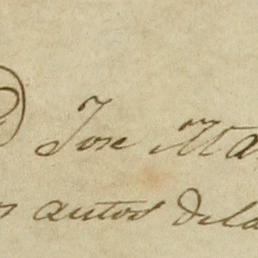 Jose Ma
autos dela